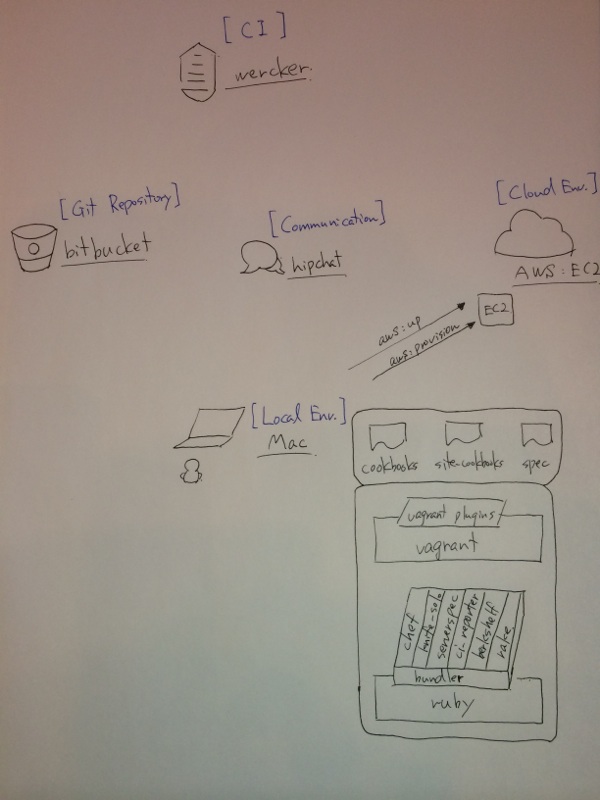 [CI]
wercker.
[Git Repository]
bitbucket
[Communication]
hipchat
[Cloud Env.]
AWS:EC2
EC2
aws:up
aws:provision
[Local Env.]
Mac
cookbooks
site-cookbooks
spec
vagrant plugins
vagrant
chef
knife-solo
serverspec
ci-reporter
berkshelf
rake
bundler
ruby